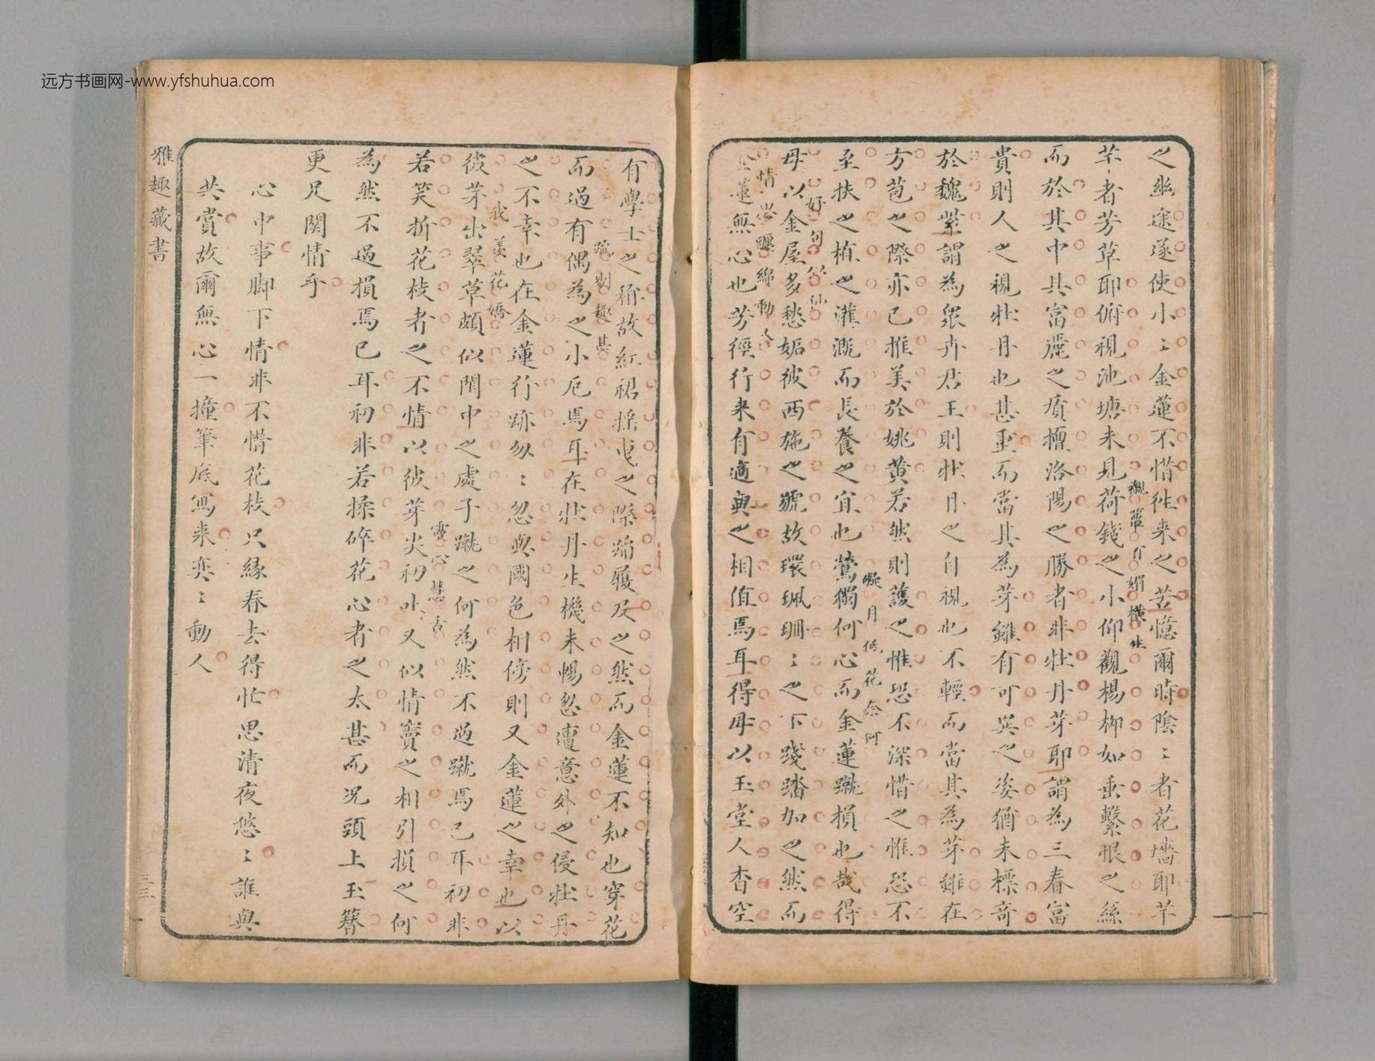 远方书画网-www.yfshuhua.com
之幽途遂使小〻金蓮不惜徃来之苦憶爾時陰〻者花墻耶芊
芊者芳草耶俯視池塘未見荷錢之小仰觀楊柳如垂繫恨之絲
觀
而於其中其富麗之質擅洛陽之勝者非牡丹芽耶謂為三春富
貴則人之視牡丹也甚重而當其為芽雖有可異之姿猶未標奇
於魏紫謂為衆卉君王則牡丹之自視也不輕而當其為芽雖在
方苞之際亦已推美於姚黄若然則護之惟恐不深惜之惟恐不
至扶之植之灌溉而長養之宜也鶯獨何心而金蓮蹴損也哉得
毋以金屋多愁妬彼西施之號故環珮珊〻之下踐踏加之然而
好句似仙
金蓮無心也芳徑行来有適與之相值焉耳得毋以玉堂人杳空
情思纏綿動人
有學士之稱故紅裙搖曳之際蹁躚及之然而金蓮不知也穿花
而過有偶為之小厄焉耳在牡丹生機未暢忽遭意外之侵牡丹
趣甚
之不幸也在金蓮行跡匆〻忽與國色相傍則又金蓮之幸也以
彼芽出翠草頗似閨中之處子蹴之何為然不過蹴焉已耳初非
我羡花嬌
若笑折花枝者之不情以彼芽尖初吐又似情竇之相引損之何
靈心慧舌
為然不過損焉已耳初非若揉碎花心者之太甚而况頭上玉簪
更足関情乎
心中事脚下情非不惜花枝只緣春去得忙思清夜悠〻誰與
共賞故爾無心一撞筆底寫来奕〻動人
雅趣藏書
三三